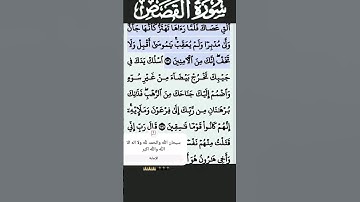 سُورَةُ الْقَصَصِ
أَلْقِ عَصَاكَ فَلَمَّا رَءَاهَا تَهْتَزُّ كَأَنَّهَا جَانٌّ
وَلَّىٰ مُدْبِرًا وَلَمْ يُعَقِّبْ يَٰمُوسَىٰٓ أَقْبِلْ وَلَا
تَخَفْ إِنَّكَ مِنَ ٱلْءَامِنِينَ ٣١ ٱسْلُكْ يَدَكَ فِي
جَيْبِكَ تَخْرُجْ بَيْضَآءَ مِنْ غَيْرِ سُوٓءٍ
وَٱضْمُمْ إِلَيْكَ جَنَاحَكَ مِنَ ٱلرَّهْبِ فَذَٰنِكَ
بُرْهَٰنَانِ مِن رَّبِّكَ إِلَىٰ فِرْعَوْنَ وَمَلَإِيْهِۦٓ
إِنَّهُمْ كَانُوا۟ قَوْمًا فَٰسِقِينَ ٣٢ قَالَ رَبِّ إِنِّي
قَتَلْتُ مِنْهُمْ نَفْسًا
سبحان الله والحمد لله ولا اله الا
الله والله اكبر
وَأَخِي هَٰرُونُ هُوَ